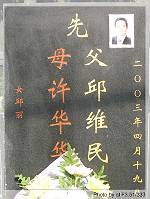 二〇〇三年四月十九
先
父邱维民
母许华华
女邱丽
Photo by